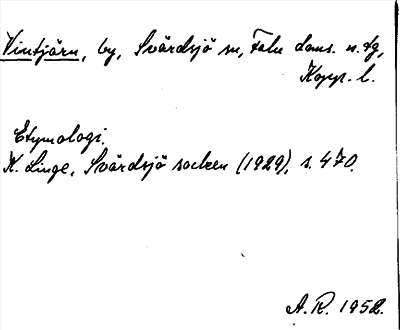 Vintjärn, by, Svärdsjö sn, Falu doms. n. tg,
Kopp. l.
Etymologi.
K. Linge, Svärdsjö socken (1929), s. 470.
A. R. 1952.